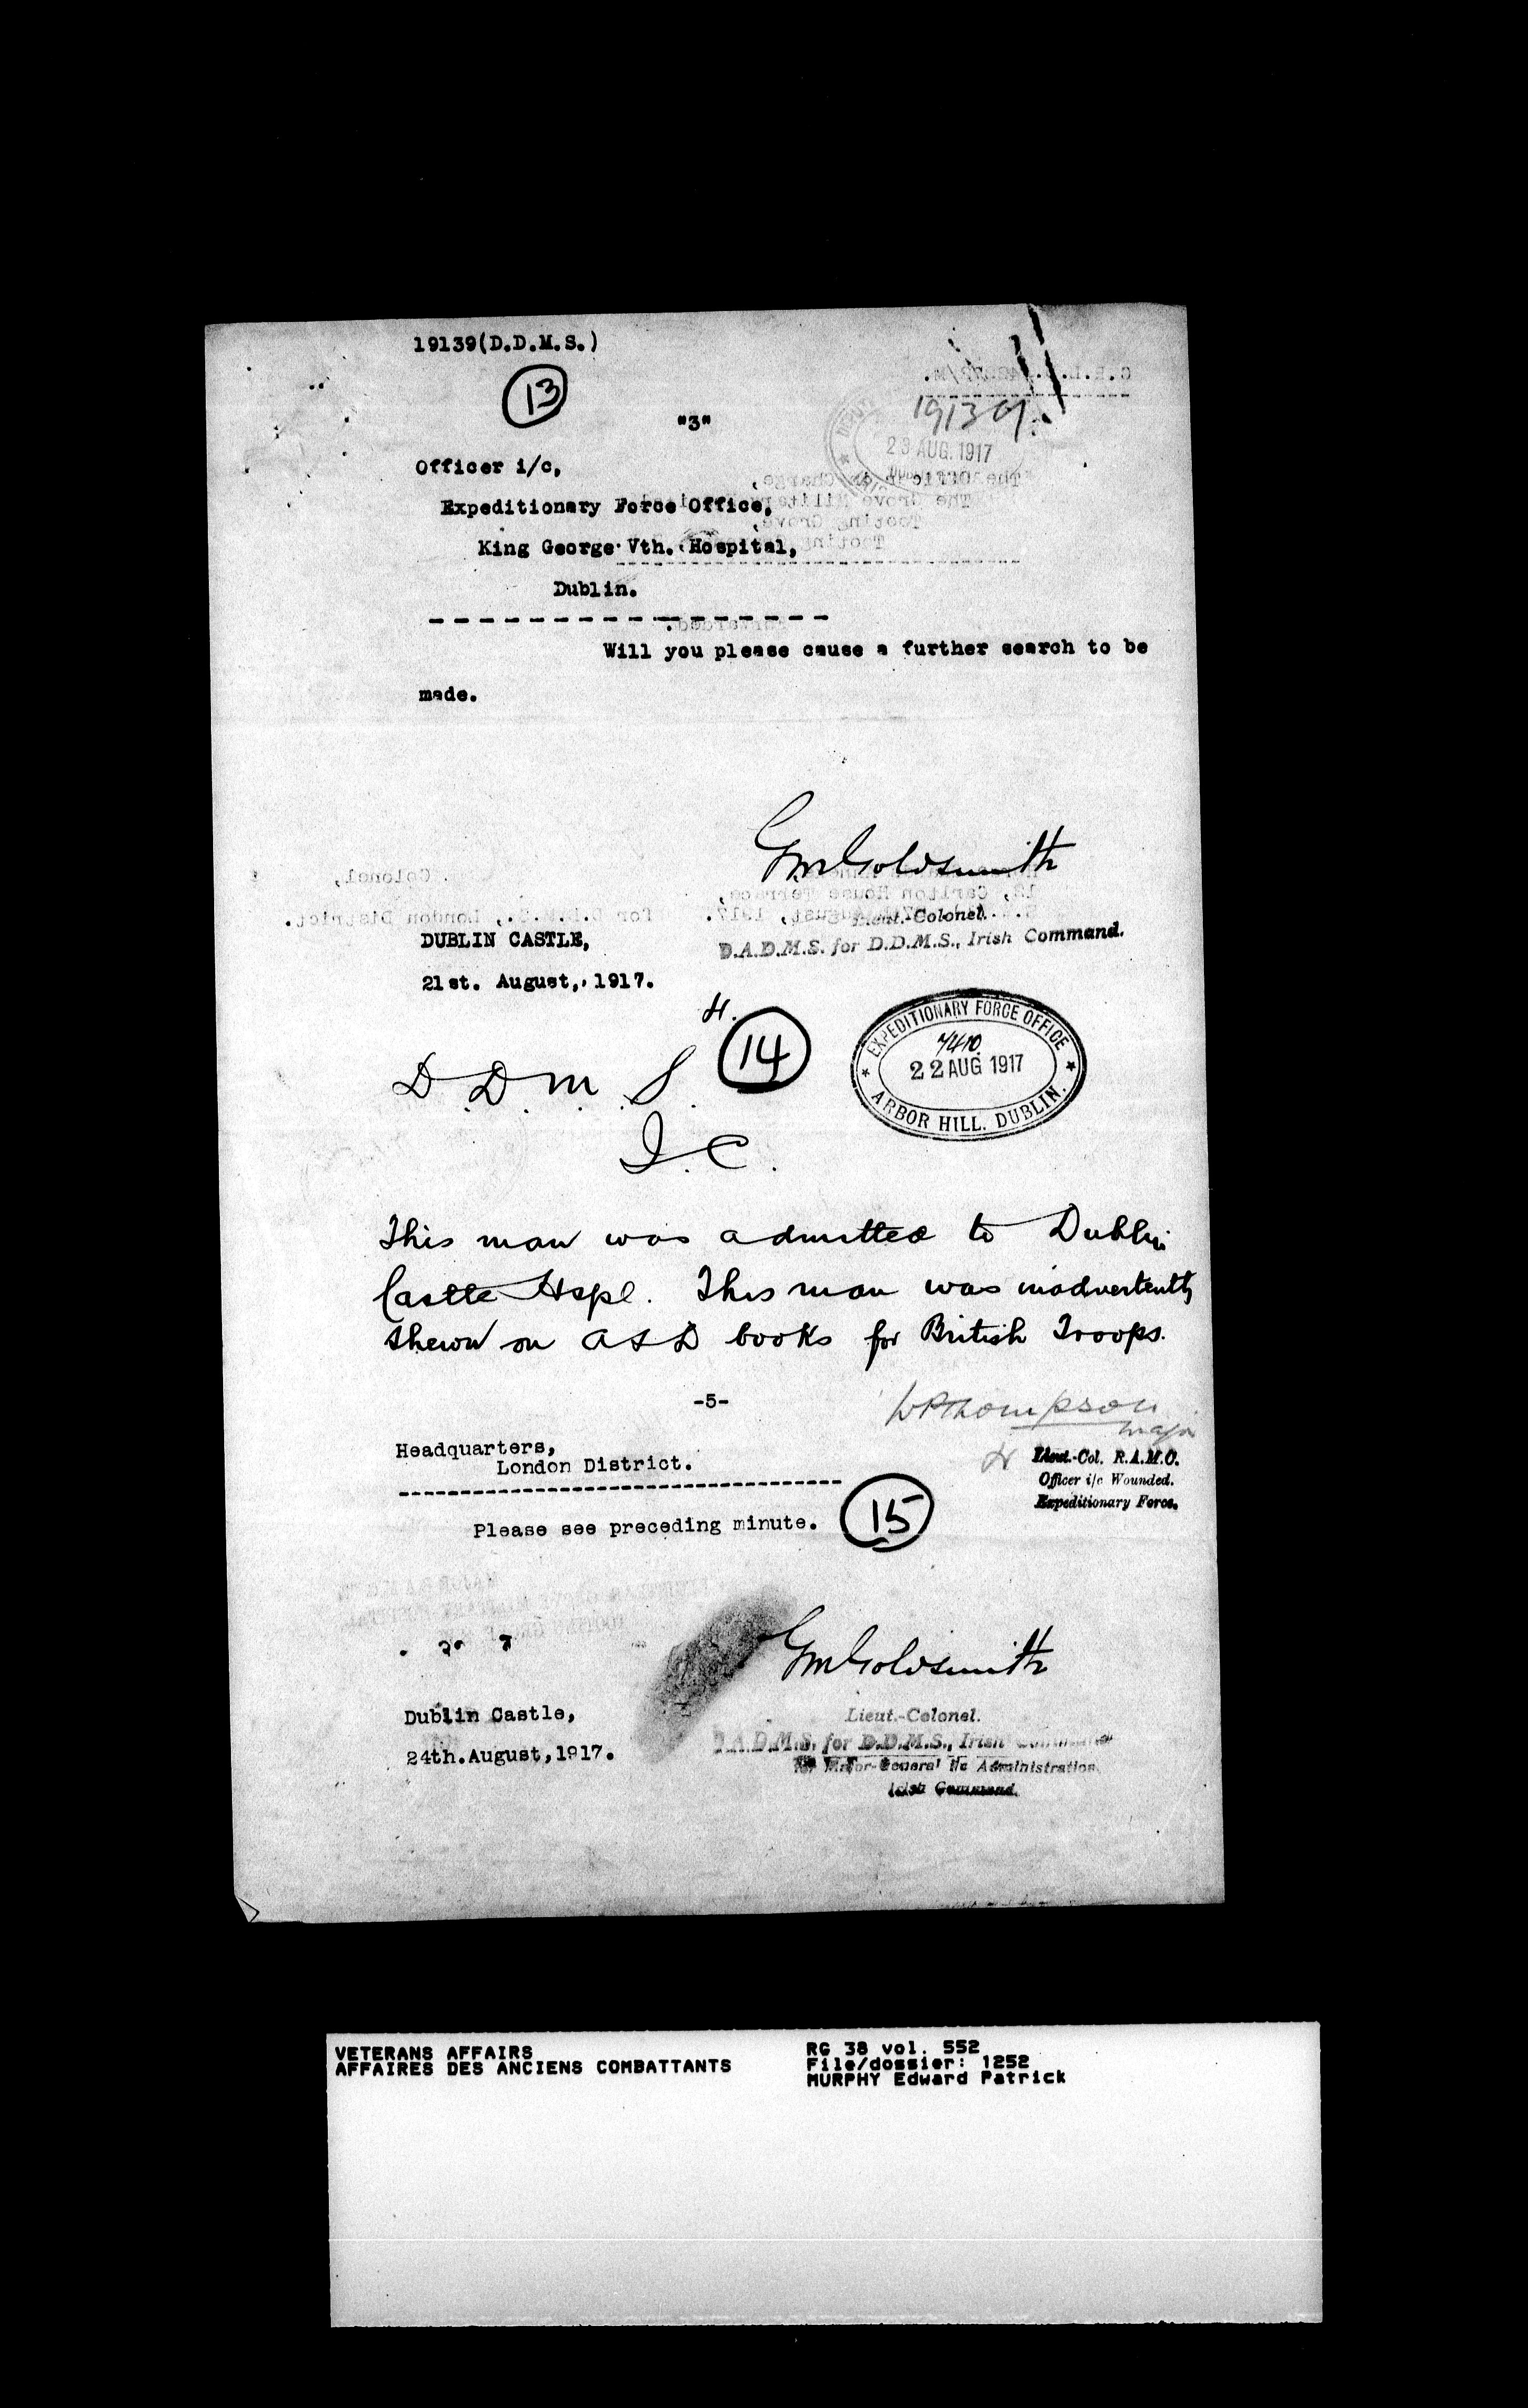 19139(D.D.M.S.)
13
19139.
"3"
23 AUG. 1917
Officer i/c,
Expeditionary Force Office,
King George Vth. Hospital,
Dublin.
Will you please cause a further search to be
made.
GM Goldsmith
Lieut.-Colonel.
D.A.D.M.S. for D.D.M.S., Irish Command.
DUBLIN CASTLE,
21st. August, 1917.
4.
14
EXPEDITIONARY FORCE OFFICE
22 AUG 1917
ARBOR HILL. DUBLIN.
D.D.M.S.
I.C.
This man was admitted to Dublin
Castle Hspl. This man was inadvertently
shewn on A & D books for British Troops.
-5-
WPThompson
Major
Lieut.-Col. R.A.M.C.
Officer i/c Wounded.
Expeditionary Force.
Headquarters,
London District.
15
Please see preceding minute.
GM Goldsmith
Lieut.-Colonel.
D.A.D.M.S. for D.D.M.S., Irish Command
for Major-General i/c Administration,
Irish Command.
Dublin Castle,
24th.August,1917.
VETERANS AFFAIRS
AFFAIRES DES ANCIENS COMBATTANTS
RG 38 vol. 552
File/dossier: 1252
MURPHY Edward Patrick